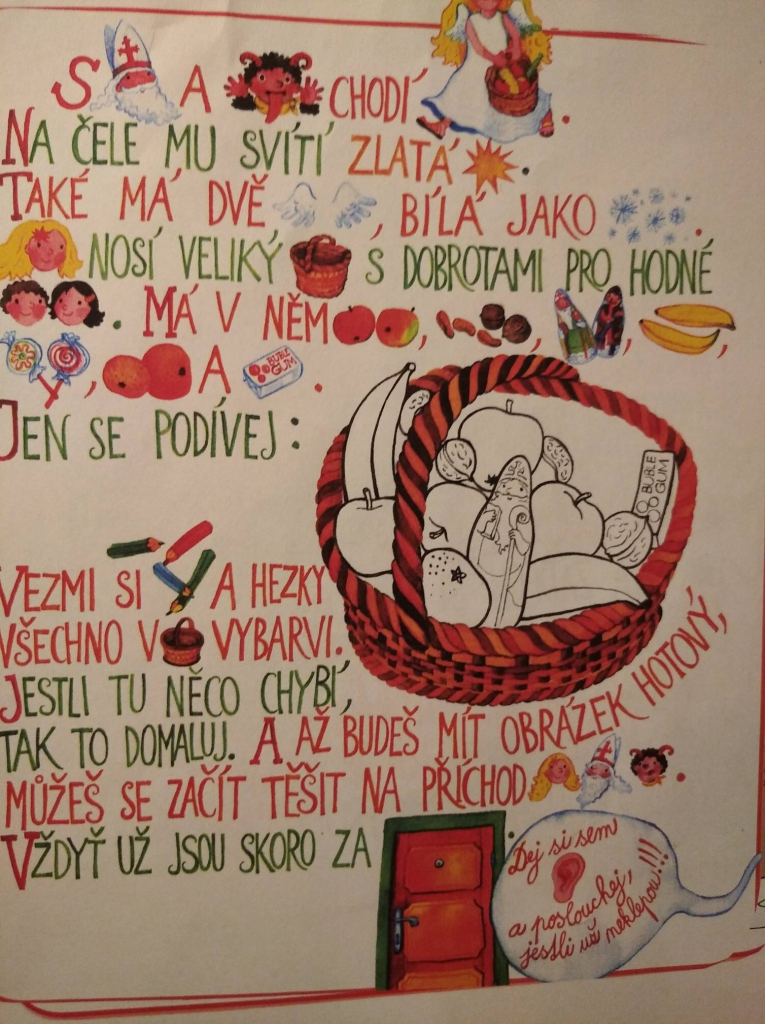 S A CHODÍ .
NA ČELE MU SVÍTÍ ZLATÁ .
TAKÉ MÁ DVĚ , BÍLÁ JAKO .
NOSÍ VELIKÝ S DOBROTAMI PRO HODNÉ
. MÁ V NĚM , , , ,
, A BUBLE GUM .
JEN SE PODÍVEJ :
BUBLE
GUM
VEZMI SI A HEZKY
VŠECHNO V VYBARVI.
JESTLI TU NĚCO CHYBÍ,
TAK TO DOMALUJ. A AŽ BUDEŠ MÍT OBRÁZEK HOTOVÝ,
MŮŽEŠ SE ZAČÍT TĚŠIT NA PŘÍCHOD .
VŽDYŤ UŽ JSOU SKORO ZA .
Dej si sem
a poslouchej,
jestli už neklepou!!!